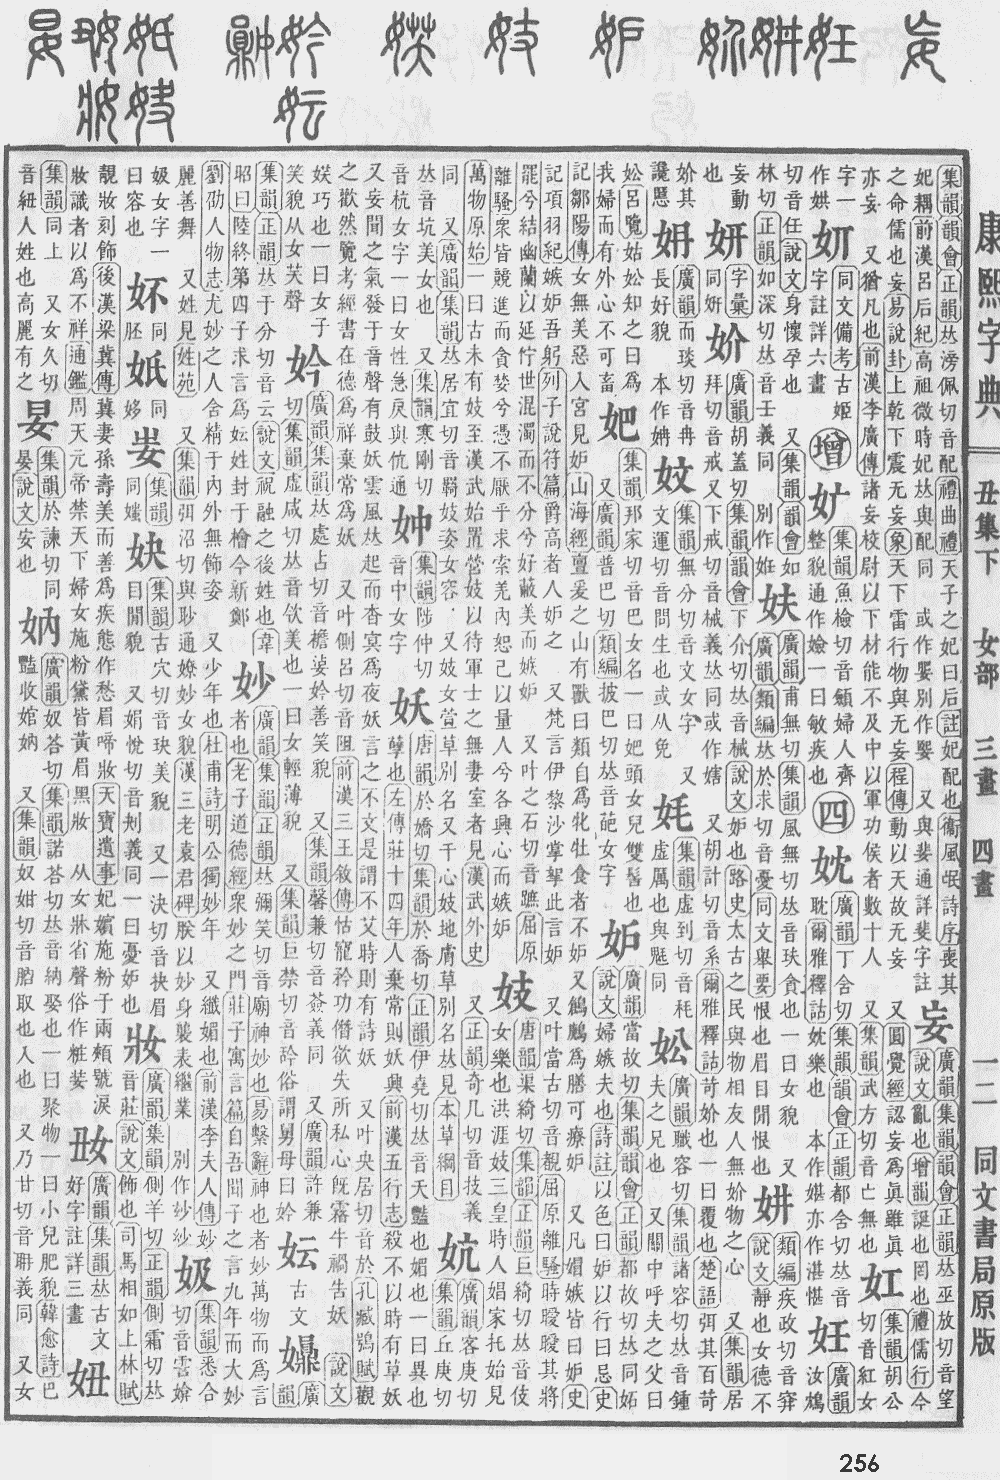 康熙字典 丑集下 女部 三畫 四畫 一二 同文書局原版
集韻韻會正韻𠀤滂佩切音配禮曲禮天子之妃曰后註妃配也衞風氓詩序喪其
妃耦前漢呂后紀高祖微時妃𠀤與配同
妄
廣韻集韻韻會正韻𠀤巫放切音望
說文亂也增韻誣也罔也禮儒行今
之命儒也妄易說卦上乾下震无妄象天下雷行物與无妄程傳動以天故无妄 又圓覺經認妄爲眞雖眞
亦妄 又猶凡也前漢李廣傳諸妄校尉以下材能不及中以軍功侯者數十人 又集韻武方切音亡無也
妅
集韻胡公
切音紅女
字一
作娂
㚤
同文備考古姬
字註詳六畫
增
㚧
集韻魚檢切音顩婦人齊
整貌通作嬐一曰敏疾也
四
妉
廣韻丁含切集韻韻會正韻都含切𠀤音
耽爾雅釋詁妉樂也 本作媅亦作湛愖
妊
廣韻
汝鴆
切音任說文身懷孕也 又集韻韻會如
林切正韻如深切𠀤音壬義同 別作姙
妋
廣韻甫無切集韻風無切𠀤音玞貪也一曰女貌 又
廣韻類編𠀤於求切音憂同文舉要恨也眉目閒恨也
妌
類編疾政切音穽
說文靜也女德不
妄動
也
妍
字彙
同姸
妎
廣韻胡蓋切集韻韻會下介切𠀤音械說文妒也路史太古之民與物相友人無妎物之心 又集韻居
拜切音戒又下戒切音械義𠀤同或作㛟 又胡計切音系爾雅釋詁苛妎也一曰覆也楚語弭其百苛
妎其
讒慝
㚩
廣韻而琰切音冉
長好貌 本作姌
妏
集韻無分切音文女字 又
文運切音問生也或从免
㚪
集韻虛到切音耗
虛厲也與魁同
妐
廣韻職容切集韻諸容切𠀤音鍾
夫之兄也 又關中呼夫之父曰
妐呂覽姑妐知之曰爲
我婦而有外心不可畜
妑
集韻邦家切音巴女名一曰妑頭女兒雙髻也
又廣韻普巴切類編披巴切𠀤音葩女字
妒
廣韻當故切集韻韻會正韻都故切𠀤同妬
說文婦嫉夫也詩註以色曰妒以行曰忌史
記鄒陽傳女無美惡入宮見妒山海經亶爰之山有獸曰類自爲牝牡食者不妒
記項羽紀嫉妒吾躬列子說符篇爵高者人妒之 又梵言伊黎沙掌拏此言妒 又叶當古切音覩屈原離騷時曖曖其將
罷兮結幽蘭以延佇世混濁而不分兮好蔽美而嫉妒 又叶之石切音蹠屈原
離騷衆皆競進而貪婪兮憑不厭乎求索羌內恕己以量人兮各興心而嫉妒
妓
唐韻渠綺切集韻正韻巨綺切𠀤音伎
女樂也洪涯妓三皇時人娼家托始見
萬物原始一曰古未有妓至漢武始置營妓以待軍士之無妻室者見漢武外史 又正韻奇几切音技義
同 又廣韻集韻𠀤居宜切音羇妓姿女容 又妓女萱草別名又千心妓地膚草別名𠀤見本草綱目
妔
廣韻客庚切
集韻丘庚切
𠀤音坑美女也 又集韻寒剛切
音杭女字一曰女性急戾與忼通
妕
集韻陟仲切
音中女字
妖
唐韻於嬌切集韻於喬切正韻伊堯切𠀤音夭豔也媚也一曰異也
孽也左傳莊十四年人棄常則妖興前漢五行志殺不以時有草妖
又妄聞之氣發于音聲有鼓妖雲風𠀤起而杳冥爲夜妖言之不文是謂不艾時則有詩妖 又叶央居切音於孔臧鴞賦觀
之歡然覽考經書在德爲祥棄常爲妖 又叶側呂切音阻前漢三王敘傳怙寵矜功僭欲失所私心旣霿牛禍告妖 說文
媄巧也一曰女子
笑貌从女芺聲
妗
廣韻集韻𠀤處占切音襜婆妗善笑貌 又集韻馨兼切音薟義同 又廣韻許兼
切集韻虛咸切𠀤音欦美也一曰女輕薄貌 又集韻巨禁切音䤺俗謂舅母曰妗
妘
古文
㜏
廣
韻
集韻正韻𠀤于分切音云說文祝融之後姓也韋
昭曰陸終第四子求言爲妘姓封于檜今新鄭
妙
廣韻集韻正韻𠀤彌笑切音廟神妙也易繫辭神也者妙萬物而爲言
者也老子道德經衆妙之門莊子寓言篇自吾聞子之言九年而大妙
劉劭人物志尤妙之人含精于內外無飾姿 又少年也杜甫詩明公獨妙年 又纖媚也前漢李夫人傳妙
麗善舞 又姓見姓苑 又集韻弭沼切與眇通嫽妙女貌漢三老袁君碑朕以妙身襲表繼業 別作玅𥿫
㚫
集韻悉合
切音霅媕
㚫女字一
曰容也
㚰
同
胚
妷
同
姼
妛
集韻
同媸
妜
集韻古穴切音玦美貌 又一決切音抉眉
目閒貌 又娟悅切音㓭義同一曰憂妒也
妝
廣韻集韻側羊切正韻側霜切𠀤
音莊說文飾也司馬相如上林賦
靚妝刻飾後漢梁冀傳冀妻孫壽美而善爲疾態作愁眉啼妝天寶遺事妃嬪施粉于兩頰號淚
妝識者以爲不祥通鑑周天元帝禁天下婦女施粉黛皆黃眉黑妝 从女牀省聲俗作粧娤
㚼
廣韻集韻𠀤古文
好字註詳三畫
妞
集韻同上 又女久切
音紐人姓也高麗有之
妟
集韻於諫切同
晏說文安也
妠
廣韻奴答切集韻諾荅切𠀤音納娶也一曰聚物一曰小兒肥貌韓愈詩巴
豔收婠妠 又集韻奴紺切音䏧取也入也 又乃甘切音聃義同 又女
256